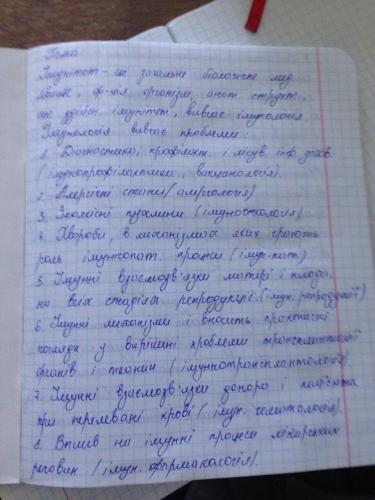 Тема
Імунітет - це загальне біологічне
організм, анат. структ.,
імунітет, вивчає імунологія
Імунологія вивчає проблеми:
1. Діагностика, профілакт. і лікув. інф. захв.
(імунопрофілактика, вакцинологія).
2. Алергічні стани (алергологія)
3. Злоякісні пухлини (імуноонкологія)
4. Хвороби, в механізмах яких грають
роль імунопат. процеси (імун. пат)
5. Імунні взаємодв'язки матері і плода,
на всіх стадіях репродукції. (імун. репродукції)
6. Імунні механізми і вносить практичні
погляди у вирішені проблеми трансплантації
органів і тканин (імунотрансплантологія)
7. Імунні взаємодв'язки донора і пацієнта
при переливані крові (імун. гематологія).
8. Вплив на імунні процеси лікарських
речовин (імун. фармакологія).